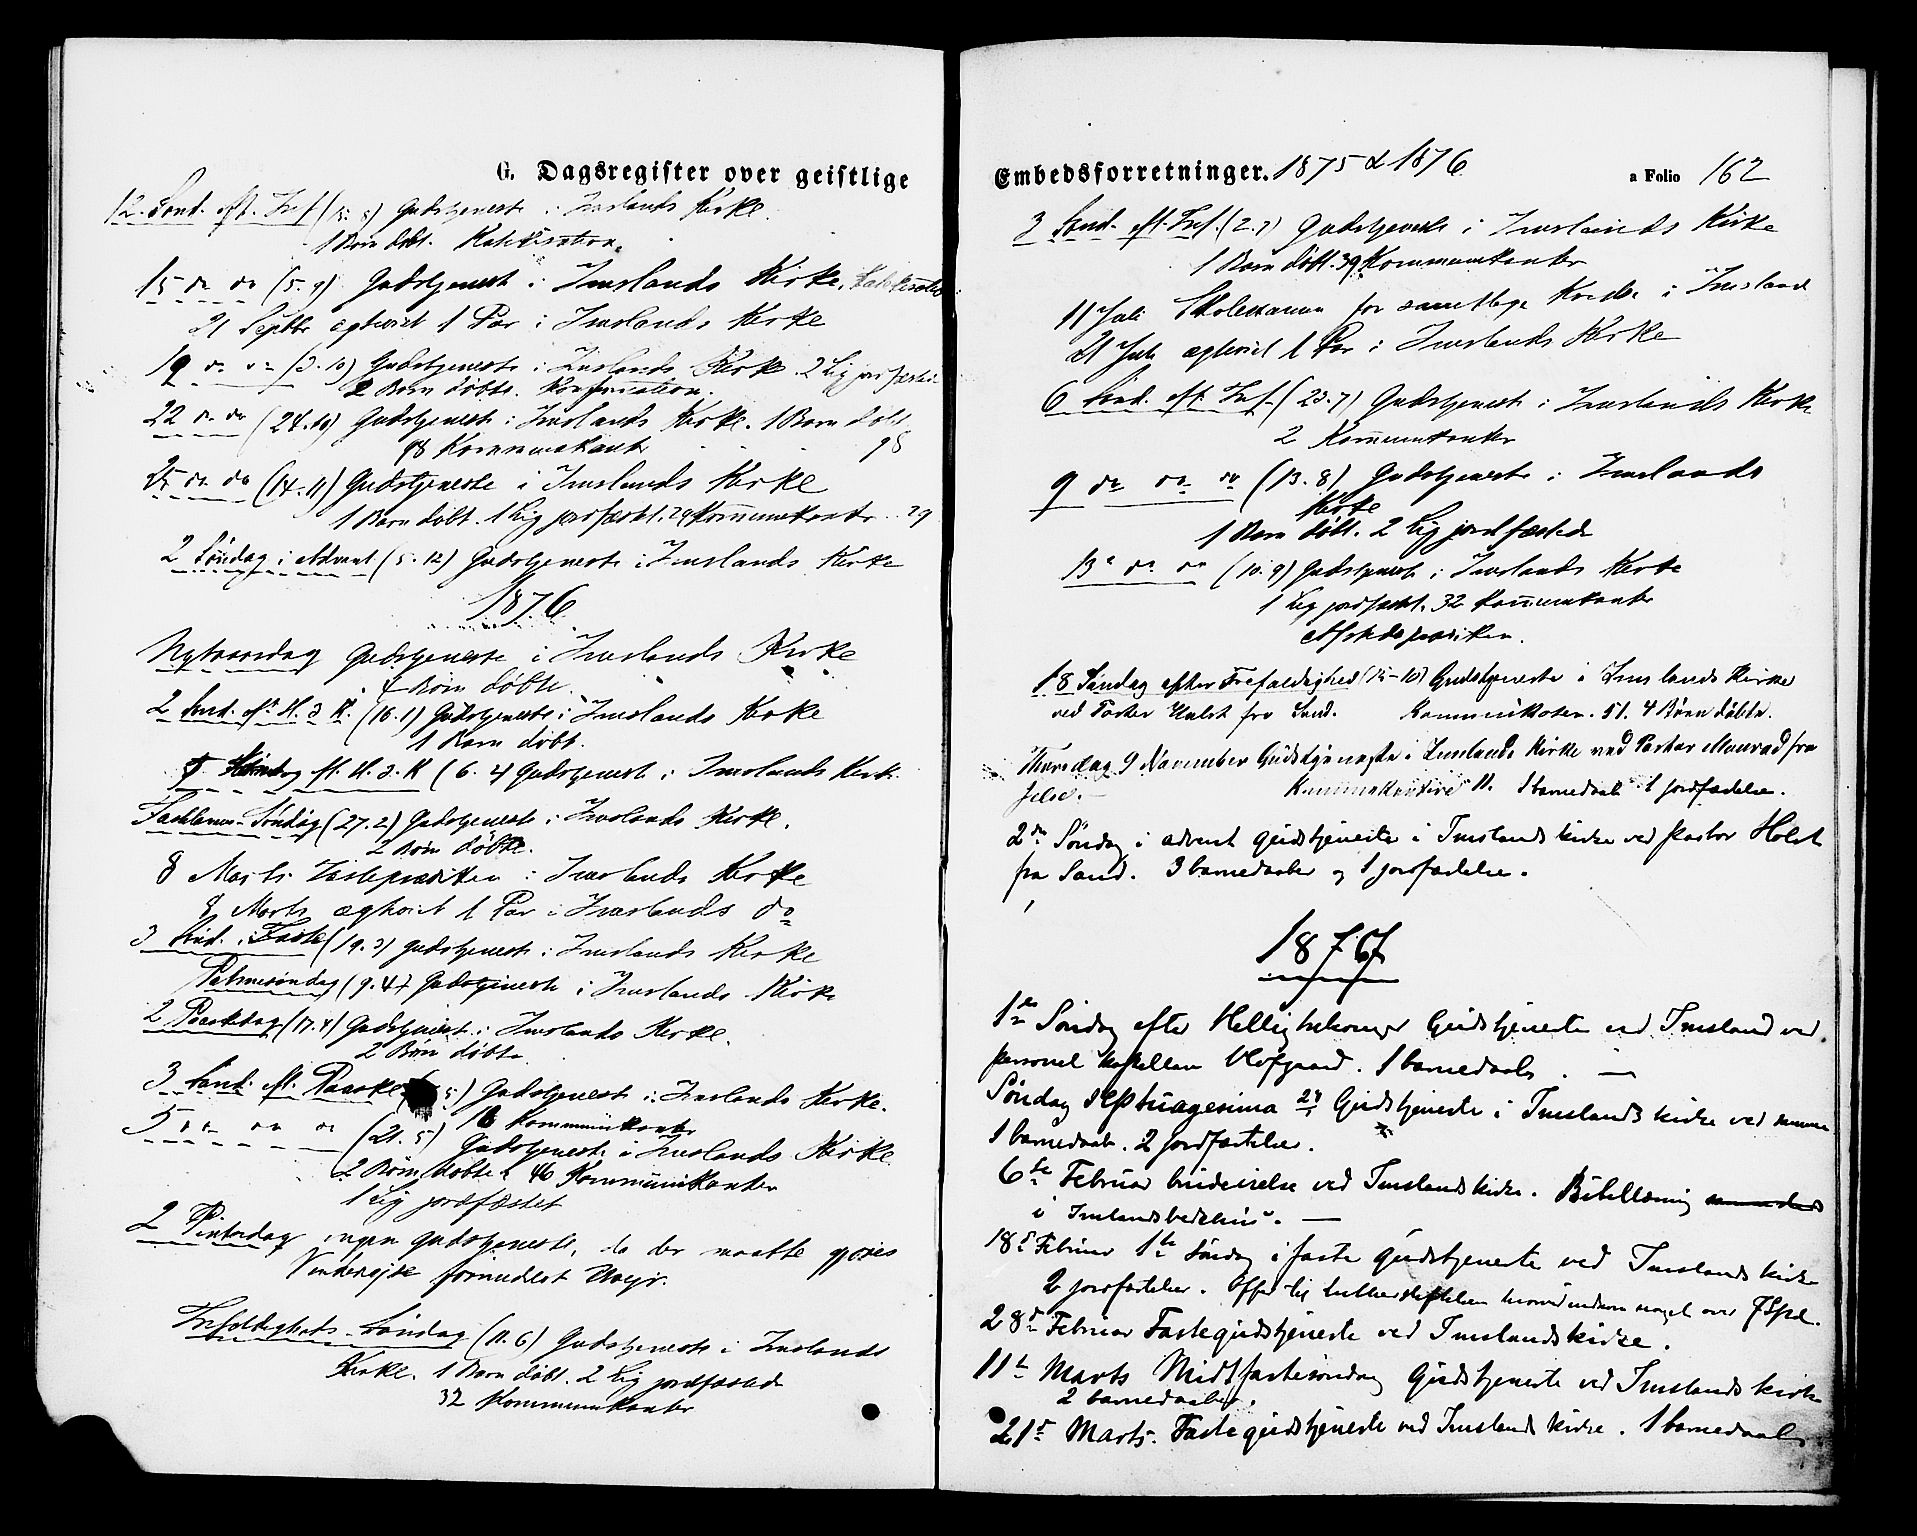 G. Dagsregister over geistlige
12. Sönd. eft. Tref. Gudstjeneste i Imslands Kirke.
1 Barn döbt. Katekisation.
15 do do (5.9) Gudstjeneste i Imslands Kirke.
21 Septbr ægteviet 1 Par i Imslands Kirke
19 do do (3.10) Gudstjeneste i Imslands Kirke. 2 Lig jordfæstede
2 Börn döbte. Konfirmation.
22 do do (24.10) Gudstjeneste i Imslands Kirke. 1 Barn döbt
98 Kommunikanter 98
25 do do (14.11) Gudstjeneste i Imslands Kirke
1 Barn döbt. 1 Lig jordfæstet. 29 Kommunikanter 29
2 Söndag i Advent (5.12) Gudstjeneste i Imslands Kirke
1876
Nytaarsdag Gudstjeneste i Imslands Kirke
4 Börn döbte.
2 Sönd. eft. H. 3 K. (16.1) Gudstjeneste i Imslands Kirke
1 Barn döbt.
5 Söndag eft. H. 3. K (6.2) Gudstjeneste i Imslands Kirke.
Fastelavns-Söndag (27.2) Gudstjeneste i Imslands Kirke.
2 Börn döbte.
8 Marts Fasteprædiken i Imslands Kirke
8 Marts ægteviet 1 Par i Imslands do
3 Sönd. i Faste (19.3) Gudstjeneste i Imslands Kirke
Palmesöndag (9.4) Gudstjeneste i Imslands Kirke
2 Paaskedag (17.4) Gudstjeneste i Imslands Kirke.
2 Börn döbte
3 Sönd. eft. Paaske Gudstjeneste i Imslands Kirke.
18 Kommunikanter
5 do do do (21.5) Gudstjeneste i Imslands Kirke.
2 Börn döbte 46 Kommunikanter
1 Lig jordfæstet
2 Pintsedag ingen Gudstjeneste, da der maatte gjöres
Venderejse formedelst Uvejr.
Trefoldigheds-Söndag (11.6) Gudstjeneste i Imslands
Kirke. 1 Barn döbt. 2 Lig jordfæstede
32 Kommunikanter
Embedsforretninger. 1875 & 1876
a Folio 162
3 Sönd. eft. Tref. (2.7) Gudstjeneste i Imslands Kirke
1 Barn döbt. 39 Kommunikanter
11 Juli Skoleexamen for samtlige Kredse i Imsland
21 Juli ægteviet 1 Par i Imslands Kirke
6 Sönd. eft. Tref. (23.7) Gudstjeneste i Imslands Kirke
2 Kommunikanter
9 do do do (13.8) Gudstjeneste i Imslands
Kirke
1 Barn döbt. 2 Lig jordfæstede
13 do do (10.9) Gudstjeneste i Imslands Kirke
1 Lig jordfæstet. 32 Kommunikanter
Afskedsprædiken.
18 Söndag efter Trefoldighed (15-10) Gudstjeneste i Imslands Kirke
ved Pastor Holst fra Sand. Kommunikanter. 51. 4 Börn döbte.
Thorsdag 9 November Gudstjeneste i Imslands Kirke ved Pastor Monrad fra
Jelse. Kommunikantere 11. 1 barnedaab 1 jordfæstelse.
2den Söndag i advent gudstjeneste i Imslands kirke ved pastor Holst
fra Sand. 3 barnedaaber og 1 jordfæstelse.
1877
1ste Söndag efter Hellig trekonger Gudstjeneste ved Imsland ved
personel kapellan Hofgaard. 1 barnedaab.
Söndag septuagesima Gudstjeneste i Imslands kirke ved samme
1 barnedaab. 2 jordfæstelser.
6te Februar brudevielse ved Imslands kirke. Bibellæsning
i Imslands bedehus.
18de Februar 1ste söndag i faste gudstjeneste ved Imslands kirke
2 jordfæstelser. Offer til Lutherstiftelsen hvorved indkom noget over 7 Spd.
28de Februar Fastegudstjeneste ved Imslands kirke.
11te Marts Midfastesöndag Gudstjeneste ved Imslands kirke
2 barnedaaber.
21de Marts. Fastegudstjeneste ved Imslands kirke. 1 barnedaab